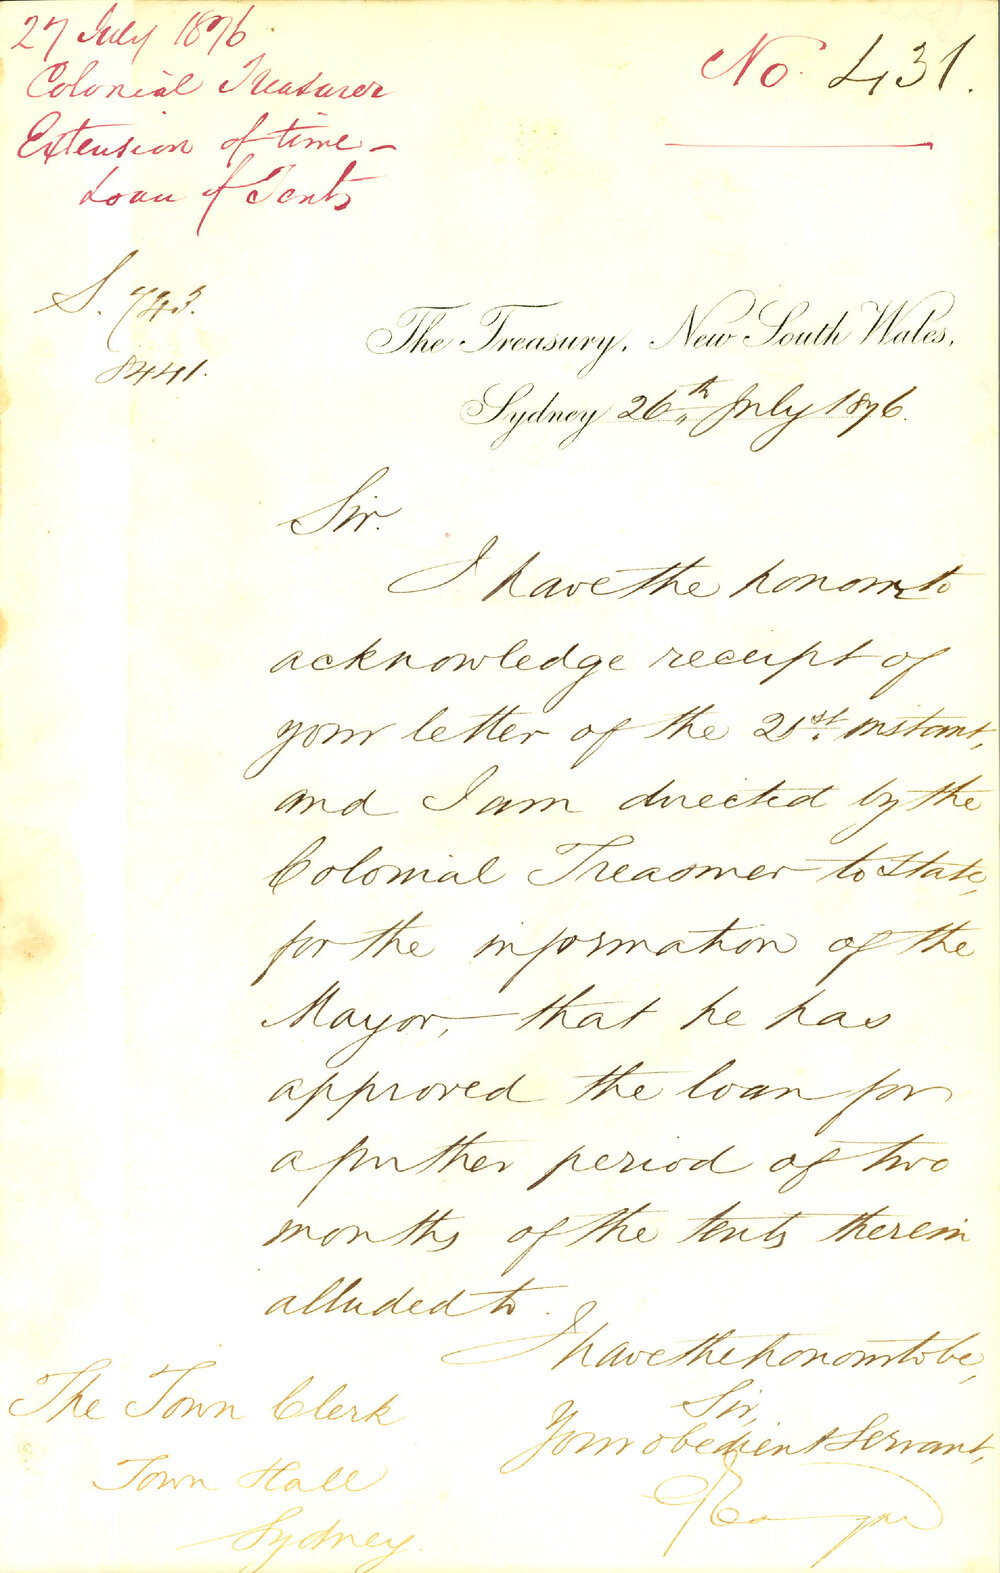 27 July 1876.
Colonial Treasurer
Extension of time -
Loan of Tents
No. 431.
S. 743.
8441.
The Treasury, New South Wales,
Sydney 26th July 1876.
Sir.
I have the honour to
acknowledge receipt of
your letter of the 21st. instant,
and I am directed by the
Colonial Treasurer to state,
for the information of the
Mayor, - that he has
approved the loan for
a further period of two
months of the tents therein
alluded to.
I have the honour to be,
Sir,
Your obedient Servant,
The Town Clerk
Town Hall
Sydney.